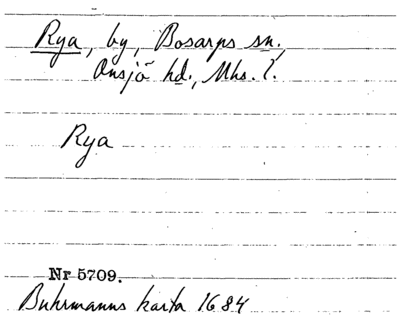 Rya, by, Bosarps sn.,
Onsjö hd., Mhs. l.
Rya
Nr 5709.
Buhrmanns karta 1684